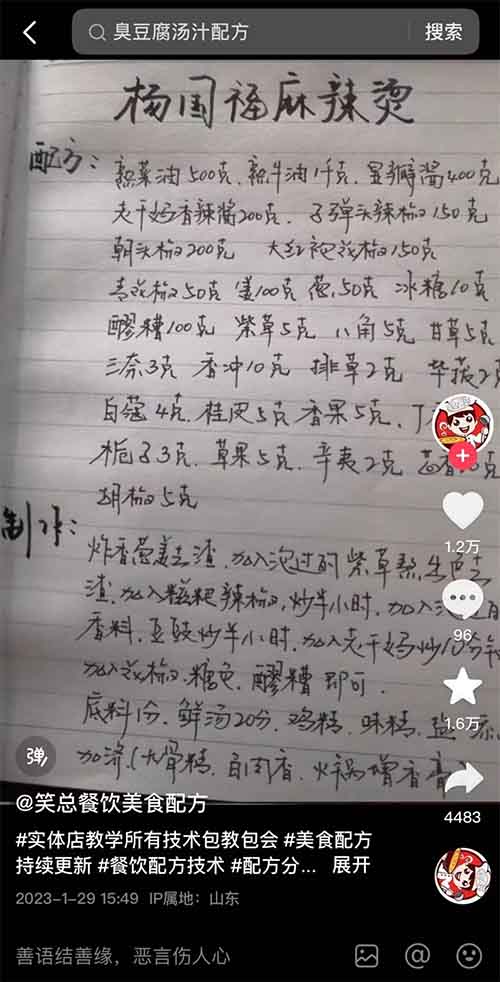 臭豆腐汤汁配方
搜索
杨国福麻辣烫
配方:
熟菜油500克、熟牛油1千克、豆瓣酱400克
老干妈香辣酱200克、子弹头辣椒150克
朝头椒200克 大红袍花椒150克
青花椒50克 姜100克 葱50克 冰糖10克
醪糟100克 紫草5克 八角5克 甘草5克
三奈3克 香冲10克 排草2克 荜拨2克
白蔻4克、桂皮5克 香果5克、丁
栀子3克、草果5克、辛夷2克
胡椒5克
制作:
炸香葱姜去渣、加入泡过的紫草熬出色去
渣、加入糍粑辣椒、炒半小时、加入
香料、豆豉炒半小时、加入老干妈炒10分钟
加入花椒、糖色、醪糟即可、
底料1份、鲜汤20分、鸡精、味精、盐
加济、(大骨精、自肉香、火锅增香膏
1.2万
96
1.6万
4483
弹
@笑总餐饮美食配方
#实体店教学所有技术包教包会 #美食配方
持续更新 #餐饮配方技术 #配方分... 展开
2023-1-29 15:49 IP属地：山东
善语结善缘，恶言伤人心